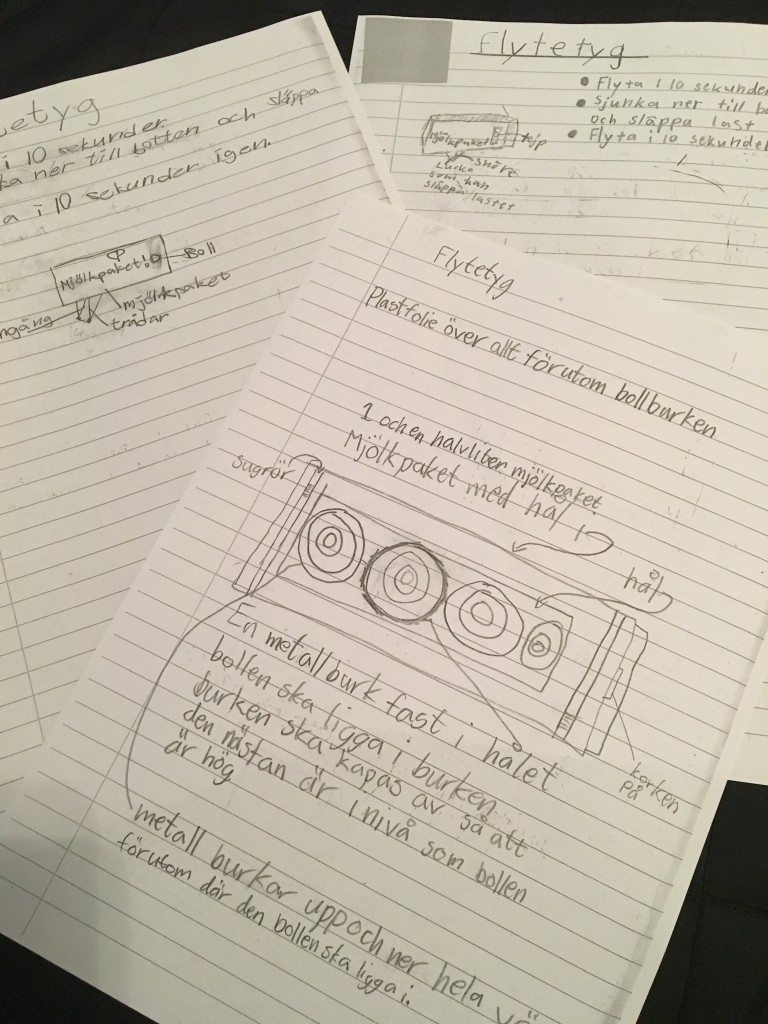 Flytetyg
Flyta i 10 sekunder
sjunka ner till
och släppa last
Flyta i 10
Mjölkpaket
snöre
Lucka
som kan
släppa
etyg
i 10 sekunder
ner till botten och släppa
i 10 sekunder igen.
Mjölkpaket
Boll
mjölkpaket
trådar
Flytetyg
Plastfolie över allt förutom bollburken
1 och en halvliter mjölkpaket
Mjölkpaket med hål i
sugrör
hål
En metallburk fast i hålet
bollen ska ligga i burken
burken ska kapas av så att
den nästan är i nivå som bollen
är hög
korken
på
metall burkar upp och ner hela
förutom där den bollen ska ligga i.